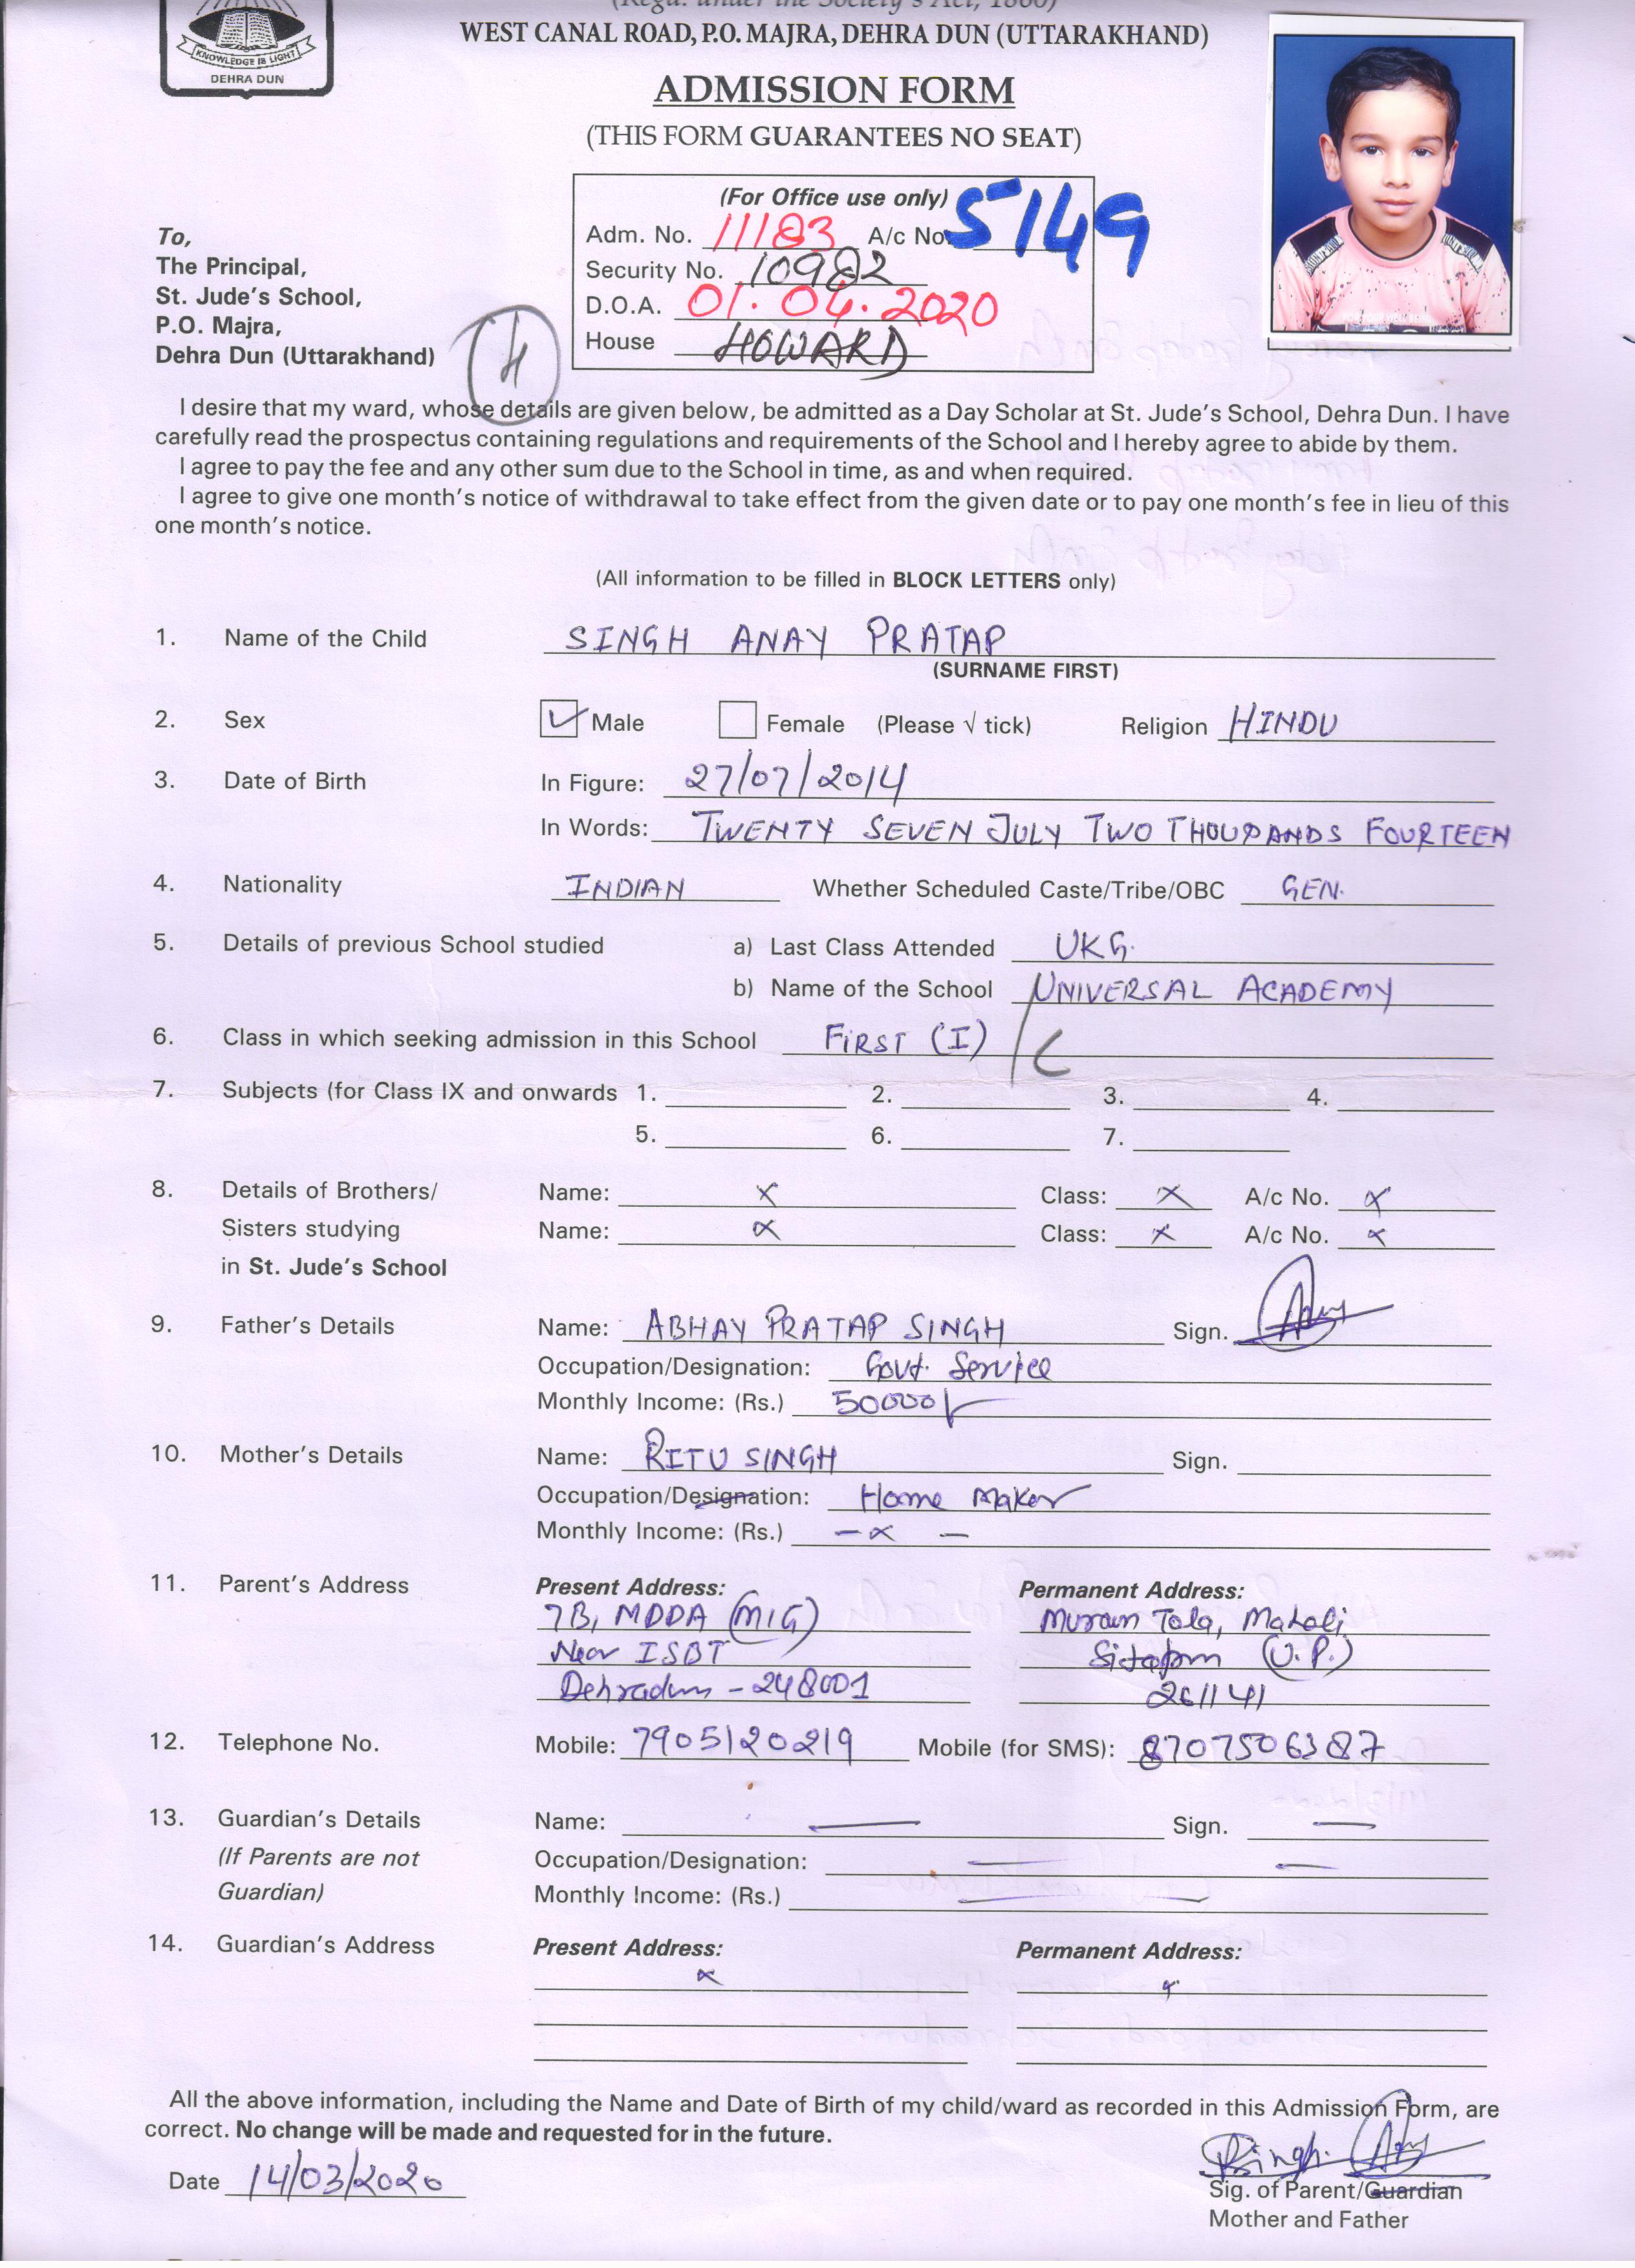 (Regd. under the Society's Act, 1860)
KNOWLEDGE IS LIGHT
DEHRA DUN
WEST CANAL ROAD, P.O. MAJRA, DEHRA DUN (UTTARAKHAND)
ADMISSION FORM
(THIS FORM GUARANTEES NO SEAT)
(For Office use only)
Adm. No. 11183 A/c No. 5149
Security No. 10982
D.O.A. 01.04.2020
House HOWARD
To,
The Principal,
St. Jude's School,
P.O. Majra,
Dehra Dun (Uttarakhand)
I desire that my ward, whose details are given below, be admitted as a Day Scholar at St. Jude's School, Dehra Dun. I have
carefully read the prospectus containing regulations and requirements of the School and I hereby agree to abide by them.
I agree to pay the fee and any other sum due to the School in time, as and when required.
I agree to give one month's notice of withdrawal to take effect from the given date or to pay one month's fee in lieu of this
one month's notice.
(All information to be filled in BLOCK LETTERS only)
1. Name of the Child SINGH ANAY PRATAP
(SURNAME FIRST)
2. Sex Male Female (Please √ tick) Religion HINDU
3. Date of Birth In Figure: 27/07/2014
In Words: TWENTY SEVEN JULY TWO THOUSANDS FOURTEEN
4. Nationality INDIAN Whether Scheduled Caste/Tribe/OBC GEN.
5. Details of previous School studied a) Last Class Attended UKG.
b) Name of the School UNIVERSAL ACADEMY
6. Class in which seeking admission in this School FIRST (I) / C
7. Subjects (for Class IX and onwards 1. 2. 3. 4.
5. 6. 7.
8. Details of Brothers/ Name: x Class: x A/c No. x
Sisters studying Name: x Class: x A/c No. x
in St. Jude's School
9. Father's Details Name: ABHAY PRATAP SINGH Sign.
Occupation/Designation: Govt. Service
Monthly Income: (Rs.) 50000/-
10. Mother's Details Name: RITU SINGH Sign.
Occupation/Designation: Home Maker
Monthly Income: (Rs.) - x -
11. Parent's Address Present Address: Permanent Address:
7B, MDDA (MIG) Muraun Tola, Maholi,
Near ISBT Sitapur (U.P.)
Dehradun - 248001 261141
12. Telephone No. Mobile: 7905120219 Mobile (for SMS): 8707506387
13. Guardian's Details Name: — Sign. —
(If Parents are not Occupation/Designation: — —
Guardian) Monthly Income: (Rs.) —
14. Guardian's Address Present Address: Permanent Address:
x x
All the above information, including the Name and Date of Birth of my child/ward as recorded in this Admission Form, are
correct. No change will be made and requested for in the future.
Date 14/03/2020 RSingh.
Sig. of Parent/Guardian
Mother and Father